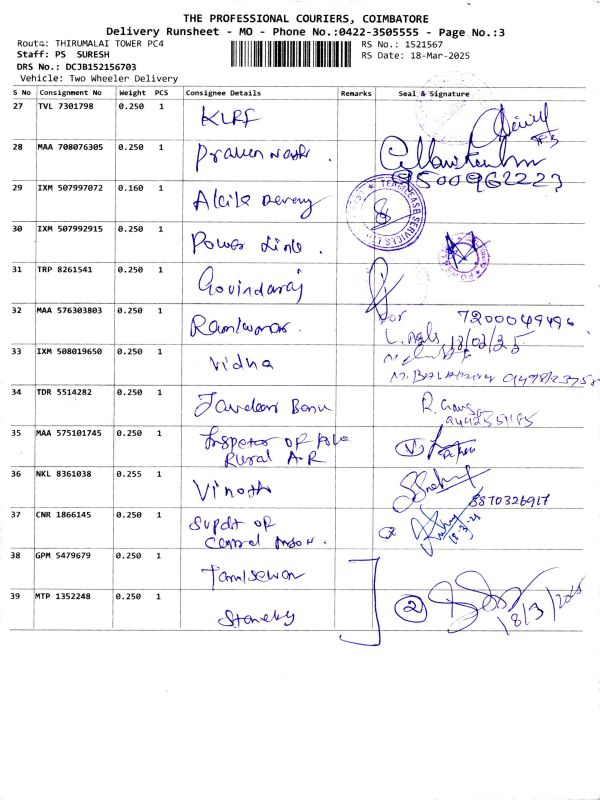 THE PROFESSIONAL COURIERS, COIMBATORE
Delivery Runsheet - MO - Phone No.:0422-3505555 - Page No.:3
Route: THIRUMALAI TOWER PC4
RS No.: 1521567
Staff: PS SURESH
RS Date: 18-Mar-2025
DRS No.: DCJB152156703
Vehicle: Two Wheeler Delivery
S No Consignment No Weight PCS Consignee Details Remarks Seal & Signature
27 TVL 7301798 0.250 1 KLRF
28 MAA 708076305 0.250 1
9500962223
29 IXM 507997072 0.160 1
30 IXM 507992915 0.250 1 Power Link.
31 TRP 8261541 0.250 1 Govindaraj
32 MAA 576303803 0.250 1 7200049496
18/03/25
33 IXM 508019650 0.250 1 Vidha
34 TDR 5514282 0.250 1 Banu
35 MAA 575101745 0.250 1 Inspetor OF
Rural A.R
36 NKL 8361038 0.255 1 Vinoth
8870326917
37 CNR 1866145 0.250 1 Supdt OF
Central Prison.
18-3-25
38 GPM 5479679 0.250 1 Tamilselvan
39 MTP 1352248 0.250 1 Stanely
2
18/3/2025